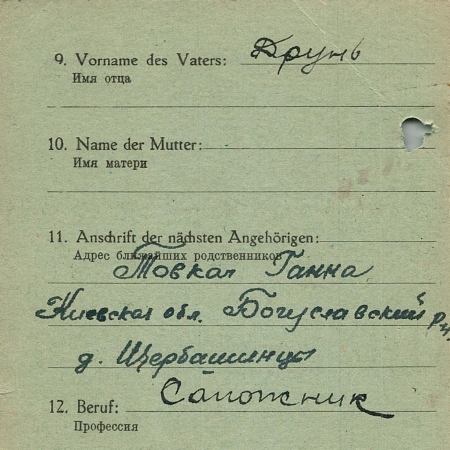 9. Vorname des Vaters: Друнь
Имя отца
10. Name der Mutter:
Имя матери
11. Anschrift der nächsten Angehörigen:
Адрес ближайших родственников
Товкач Ганна
Киевская обл. Богуславский рн,
д. Щербашинцы
12. Beruf: Сапожник
Профессия